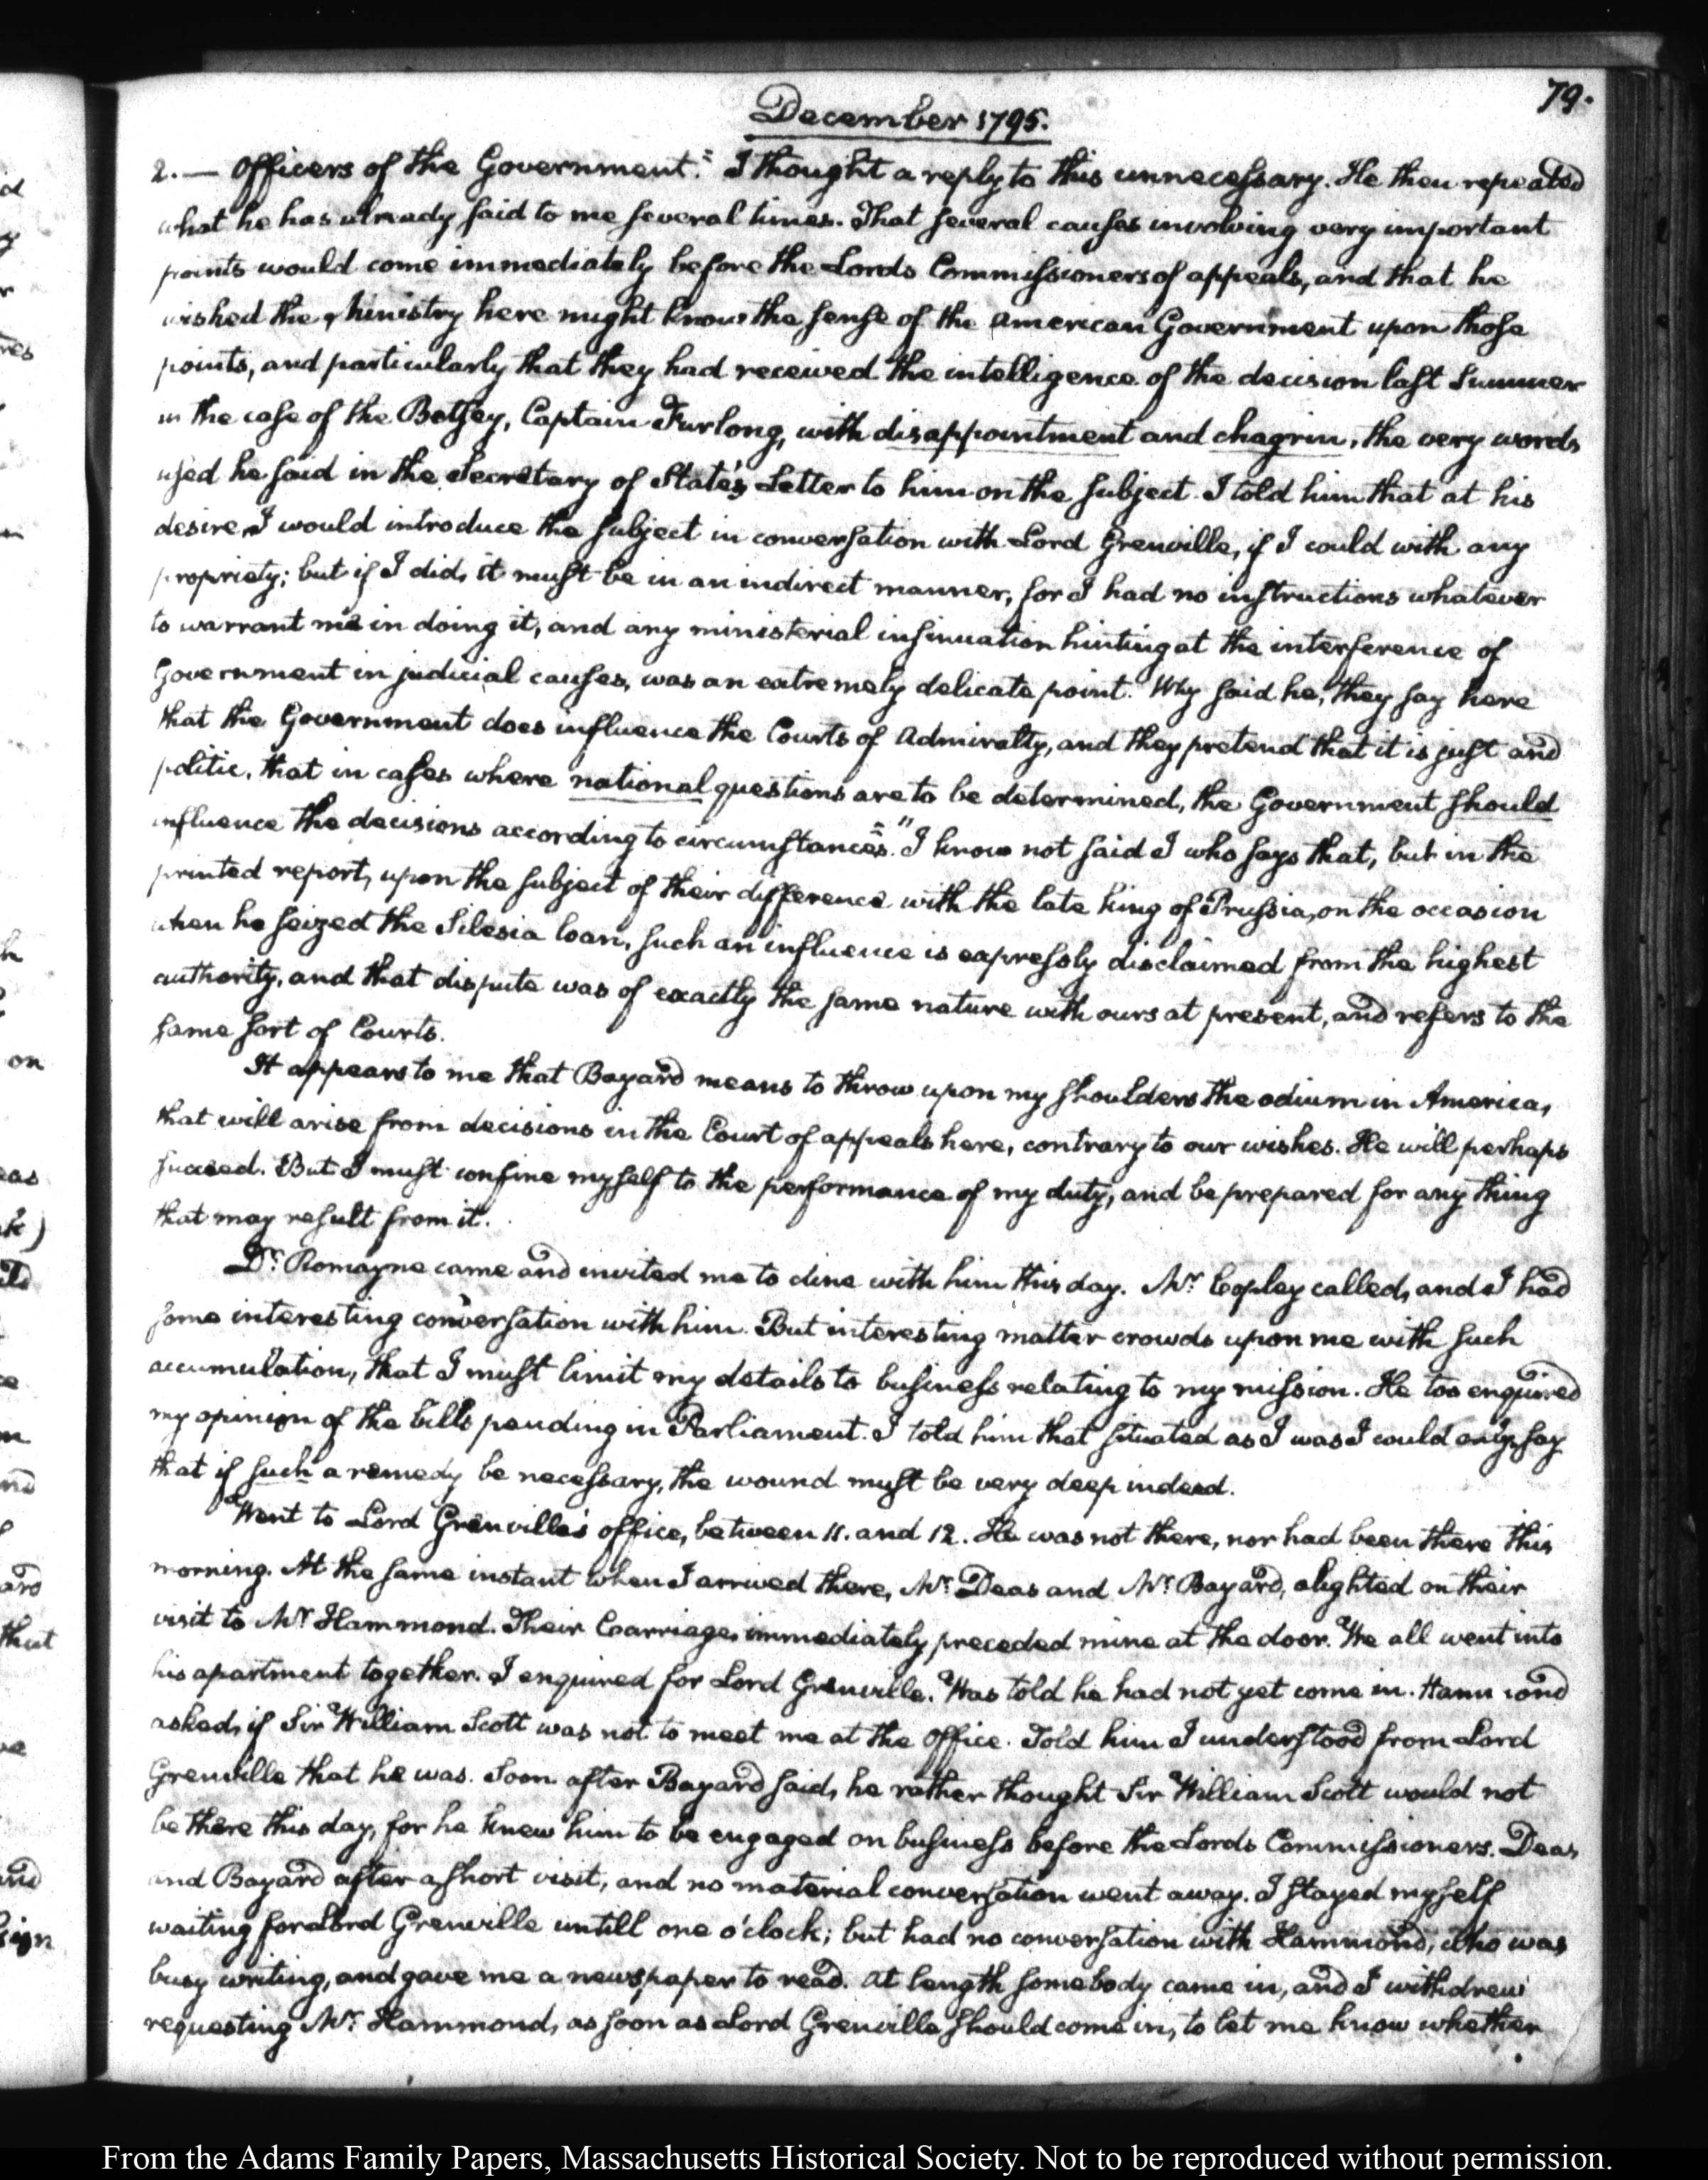 79.
December 1795.
2. — Officers of the Government." I thought a reply to this unnecessary. He then repeated
what he has already said to me several times. That several causes involving very important
points would come immediately before the Lords Commissioners of appeals, and that he
wished the Ministry here might know the sense of the American Government upon those
points, and particularly that they had received the intelligence of the decision last Summer
in the case of the Betsey, Captain Furlong, with disappointment and chagrin, the very words
used he said in the Secretary of State's Letter to him on the subject. I told him that at his
desire I would introduce the subject in conversation with Lord Grenville, if I could with any
propriety; but if I did, it must be in an indirect manner, for I had no instructions whatever
to warrant me in doing it, and any ministerial insinuation hinting at the interference of
Government in judicial causes, was an extremely delicate point. "Why said he, they say here
that the Government does influence the Courts of Admiralty, and they pretend that it is just and
politic, that in cases where national questions are to be determined, the Government should
influence the decisions according to circumstances." "I know not said I who says that, but in the
printed report, upon the subject of their difference with the late king of Prussia, on the occasion
when he seized the Silesia loan, such an influence is expressly disclaimed from the highest
authority, and that dispute was of exactly the same nature with ours at present, and refers to the
same sort of Courts.
It appears to me that Bayard means to throw upon my shoulders the odium in America,
that will arise from decisions in the Court of appeals here, contrary to our wishes. He will perhaps
succeed. But I must confine myself to the performance of my duty, and be prepared for any thing
that may result from it.
Dr. Romayne came and invited me to dine with him this day. Mr. Copley called, and I had
some interesting conversation with him. But interesting matter crowds upon me with such
accumulation, that I must limit my details to business relating to my mission. He too enquired
my opinion of the bills pending in Parliament. I told him that situated as I was I could only say
that if such a remedy be necessary, the wound must be very deep indeed.
Went to Lord Grenville's office, between 11. and 12. He was not there, nor had been there this
morning. At the same instant when I arrived there, Mr. Deas and Mr. Bayard, alighted on their
visit to Mr. Hammond. Their Carriage, immediately preceded mine at the door. We all went into
his apartment together. I enquired for Lord Grenville. Was told he had not yet come in. Hammond
asked, if Sir William Scott was not to meet me at the office. Told him I understood from Lord
Grenville that he was. Soon after Bayard said, he rather thought Sir William Scott would not
be there this day, for he knew him to be engaged on business before the Lords Commissioners. Deas
and Bayard after a short visit, and no material conversation went away. I stayed myself
waiting for Lord Grenville untill one o'clock; but had no conversation with Hammond, who was
busy writing, and gave me a newspaper to read. At length somebody came in, and I withdrew
requesting Mr. Hammond, as soon as Lord Grenville should come in, to let me know whether
From the Adams Family Papers, Massachusetts Historical Society. Not to be reproduced without permission.